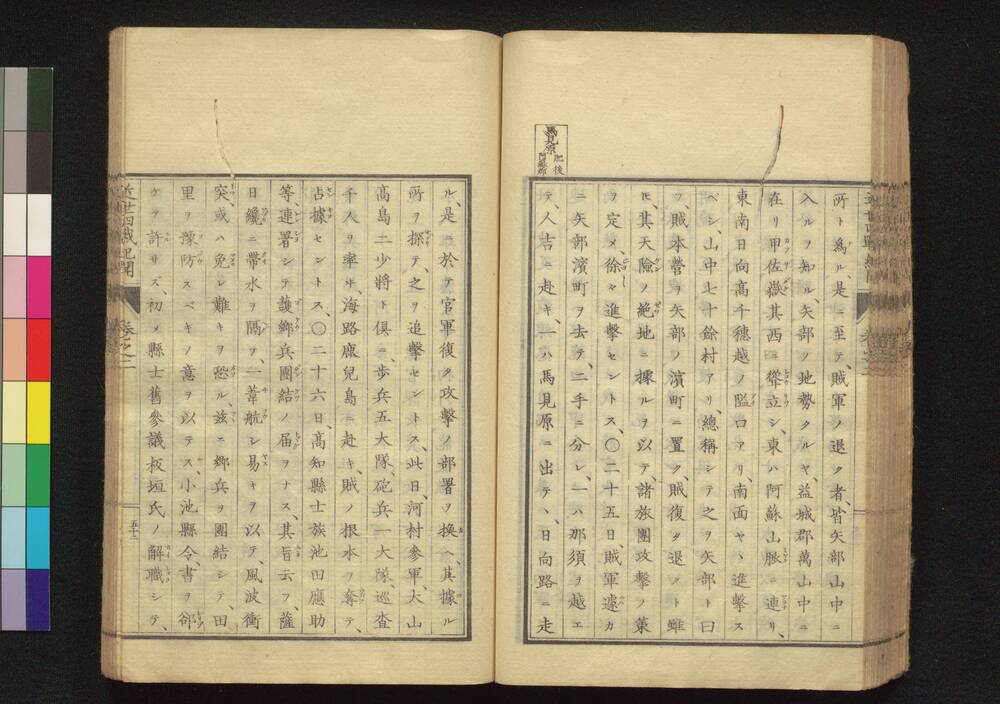 馬見原
肥後
所ト爲ル、是ニ至テ、賊軍ノ退ク者、皆矢部山中ニ
入ルヲ知ル、矢部ノ地勢タルヤ、益城郡萬山中ニ
在リ甲佐嶽其西ニ聳立シ、東ハ阿蘇山脈ニ連リ、
東南日向高千穂越ノ隘口アリ、南面ヤヽ進擊ス
ベシ、山中七十餘村アリ、總稱シテ之ヲ矢部ト曰
フ、賊本營ヲ矢部ノ濱町ニ置ク、賊復タ退クト雖
ヒ、其天險ノ絶地ニ據ルヲ以テ、諸旅團攻擊ノ策
ヲ定メ、徐々進擊セントス、〇二十五日、賊軍遽カ
ニ矢部濱町ヲ去テ、二手ニ分レ、一ハ那須ヲ越エ
テ、人吉ニ赴キ、一ハ馬見原ニ出テヽ、日向路ニ走
ル、是ニ於テ官軍復タ攻擊ノ部署ヲ換ヘ、其據ル
所ヲ探テ、之ヲ追擊セントス、此日、河村參軍、大山
高島二少將ト俱ニ、步兵五大隊、砲兵一大隊、巡査
千人ヲ率ヰ、海路鹿兒島ニ赴キ、賊ノ根本ヲ奪テ、
占據セントス、〇二十六日、高知縣士族池田應助
等、連署シテ護鄕兵團結ノ届ヲナス、其旨云フ、薩
日纔ニ帶水ヲ隔ヲ、一葦航シ易キヲ以テ、風波衝
突、或ハ免レ難キヲ恐ル、茲ニ鄕兵ヲ團結シテ、田
里ヲ豫防スベキノ意ヲ以テス、小池縣令、書ヲ郤
ケヲ許サズ、初メ縣士舊參議板垣氏ノ解職シテ、
卷之二
五十三